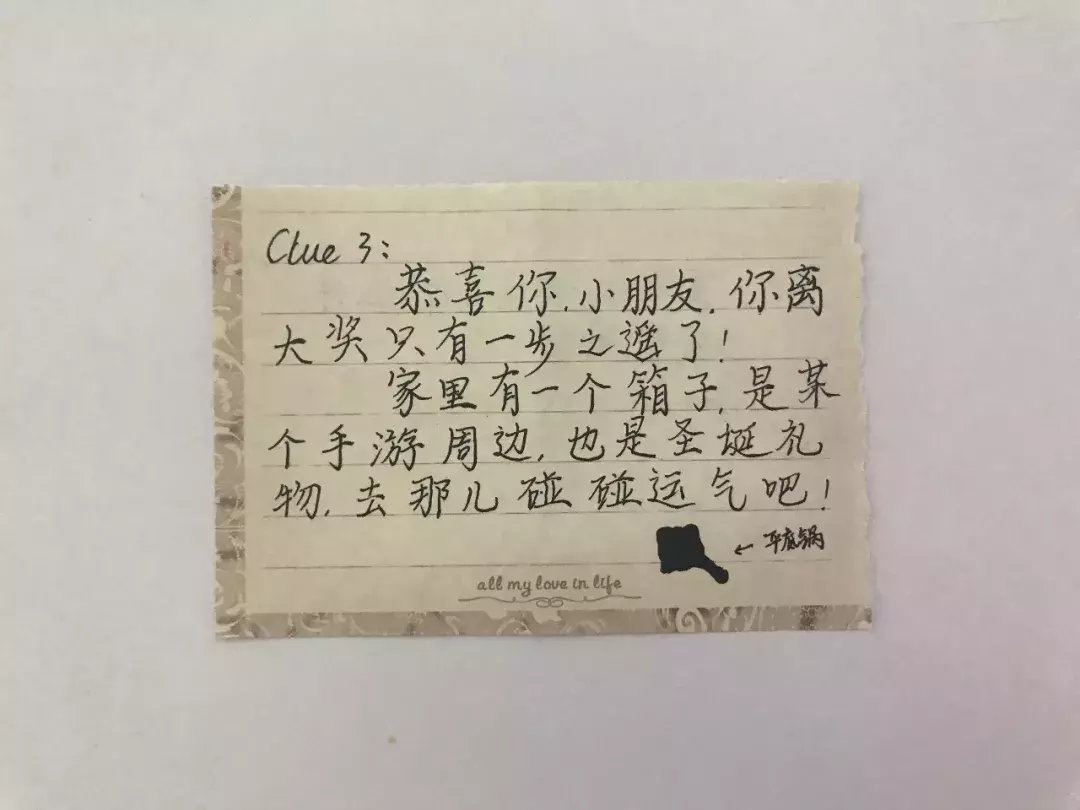 Clue 3:
恭喜你,小朋友,你离
大奖只有一步之遥了!
家里有一个箱子,是某
个手游周边,也是圣诞礼
物,去那儿碰碰运气吧!
←平底锅
all my love in life